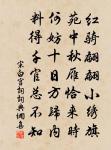 红骑翩翩小绣旗
苑中秋雁恰来时
份份十日方归内
料得子官总不知
宋白宫词词典网集